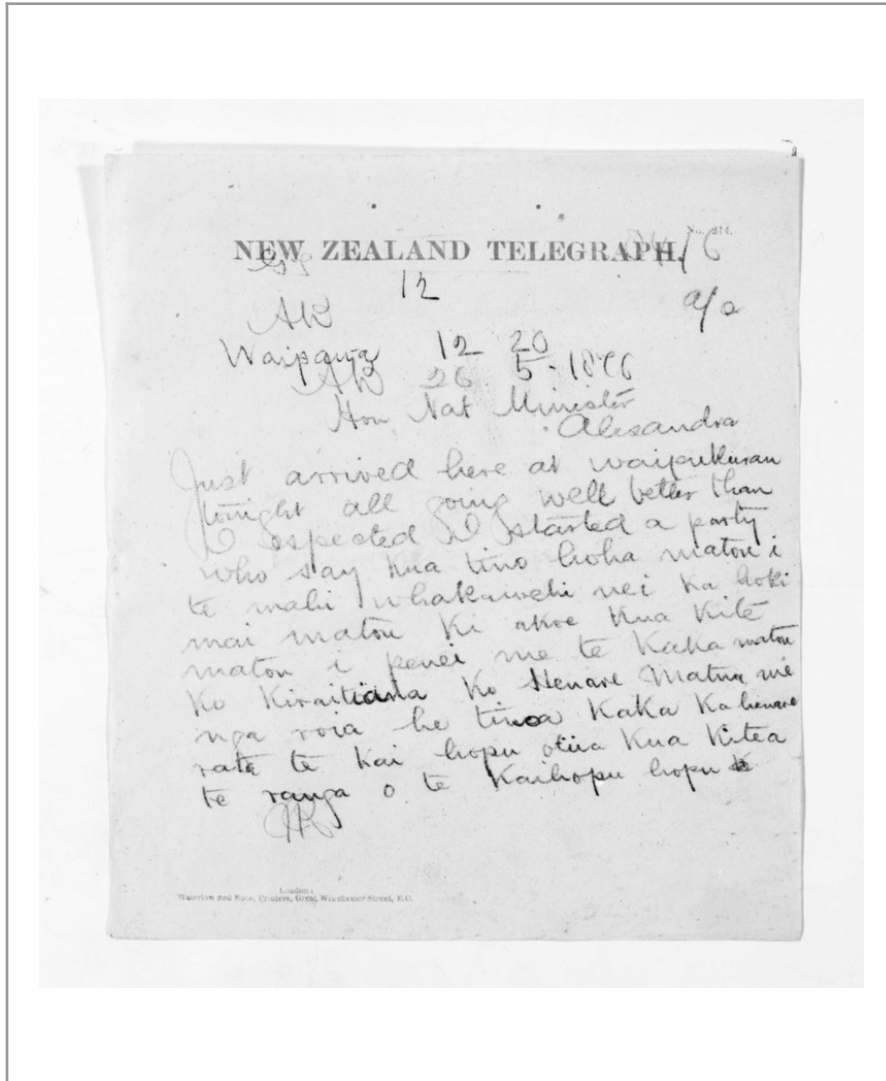 NEW ZEALAND TELEGRAPH.
12
AK
a/a
Waipawa 12 20
AK 26 5 - 1876
Hon Nat Minister
Alexandra
Just arrived here at waipukurau
tonight all going well better than
I expected I started a party
who say Kua tino hoha matou i
te mahi whakawehi nei Ka hoki
mai matou Ki akoe Kua Kite
matou i penei me te Kaka matou
Ko Kiraitiana Ko Henare Matua me
nga roia he tinoa Kaka Ka henare
rate te Kai hopu otiia Kua Kitea
te ranga o te Kaihopu hopu
London:
Waterlow and Sons, Printers, Great Winchester Street, E.C.